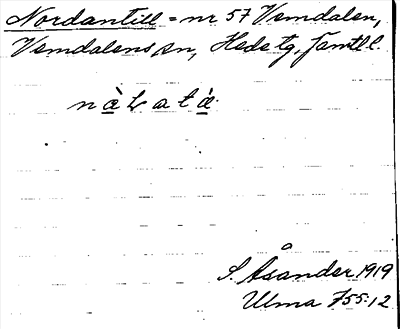 Nordantill = nr 57 Vemdalen,
Vemdalens sn, Hede tg, Jämtl l.
nà̱Latà̱
S. Åsander 1919
Ulma 755:12